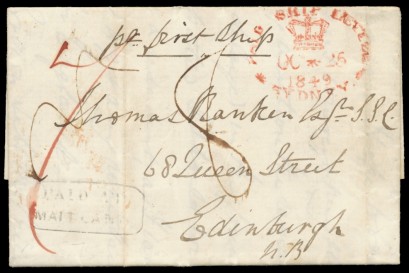 pr first Ship
PAID SHIP LETTER
OC 26
1849
SYDNEY
Thomas Ranken Esqr. S.S.C.
68 Queen Street
Edinburgh
N.B
PAID AT
MAITLAND